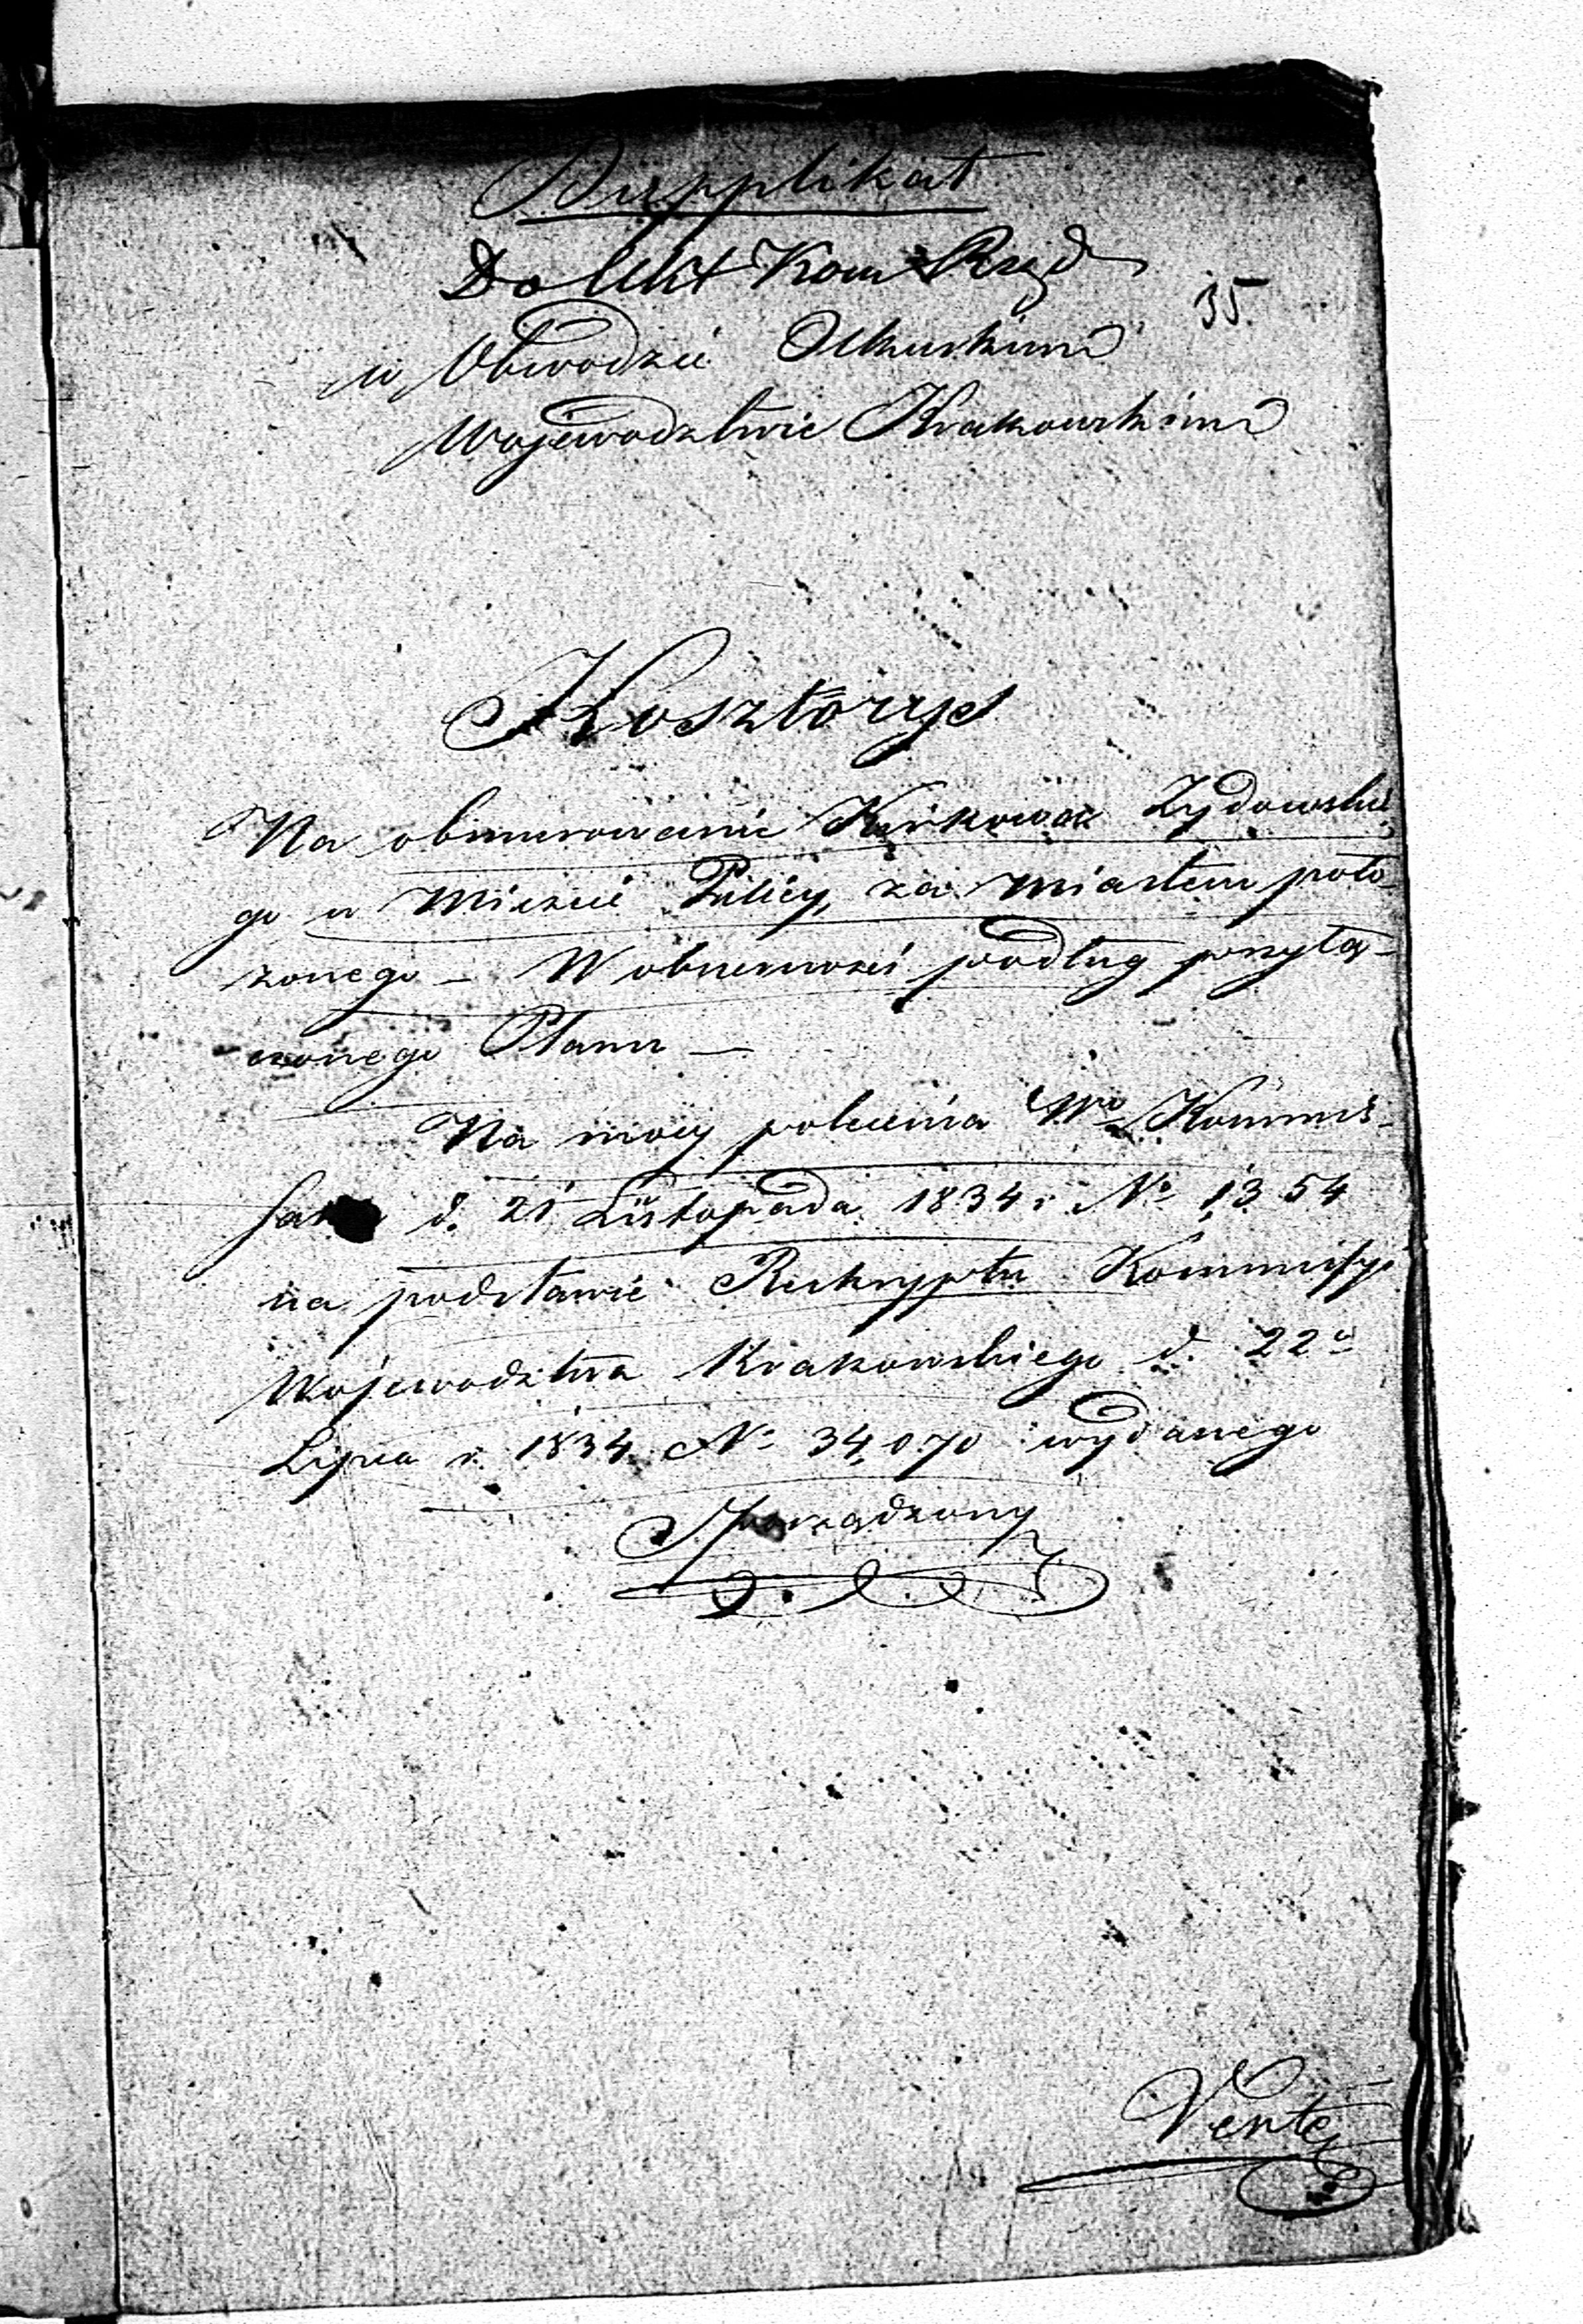 Dupplikat
Do Akt Kom Rząd
35.
w Obwodzie Olkuskim
Województwie Krakowskim
Kosztorys
Na obmurowanie Kirkowa Żydowskie
go w Mieście Pilicy, za Miastem poło
żonego – W obszerności podług przyłą-
czonego Planu —
Na mocy polecenia Wo Kommis-
sarza d. 21 Listopada 1834 r. No 1354
na podstawie Reskryptu Kommissyi
Województwa Krakowskiego d. 22o
Lipca r. 1834 No 34,070 wydanego
Sporządzony
Verte